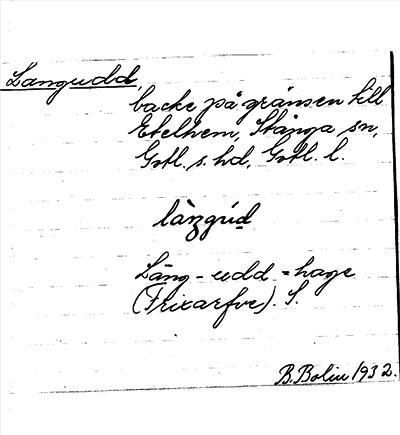 Langudd,
backe på gränsen till
Etelhem, Stånga sn,
Gotl. s. hd, Gotl. l.
làŋgúd
Lång-udd = hage
(Frixarfve). S.
B. Bolin 1932.